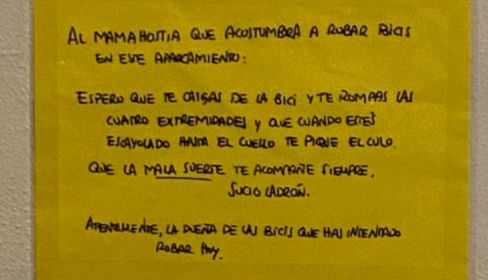 AL MAMAHOSTIA QUE ACOSTUMBRA A ROBAR BICIS
EN ESTE APARCAMIENTO:
ESPERO QUE TE CAIGAS DE LA BICI Y TE ROMPAS LAS
CUATRO EXTREMIDADES Y QUE CUANDO ESTES
ESCAYOLADO HASTA EL CUELLO TE PIQUE EL CULO.
QUE LA MALA SUERTE TE ACOMPAÑE SIEMPRE,
SUCIO LADRÓN.
ATENTAMENTE, LA DUEÑA DE LAS BICIS QUE HAS INTENTADO
ROBAR HOY.